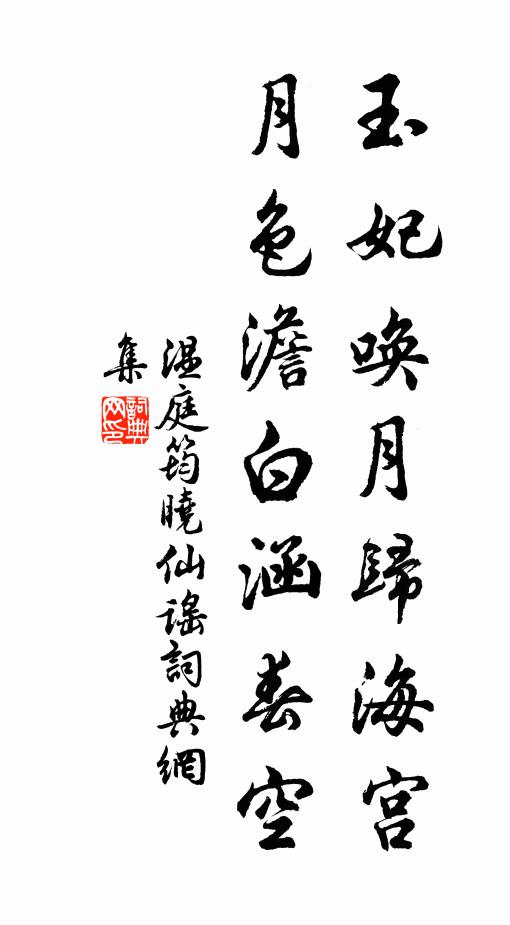 玉妃喚月歸海宮
月色澹白涵春空
溫庭筠曉仙謠詞典網
集
詞典網印